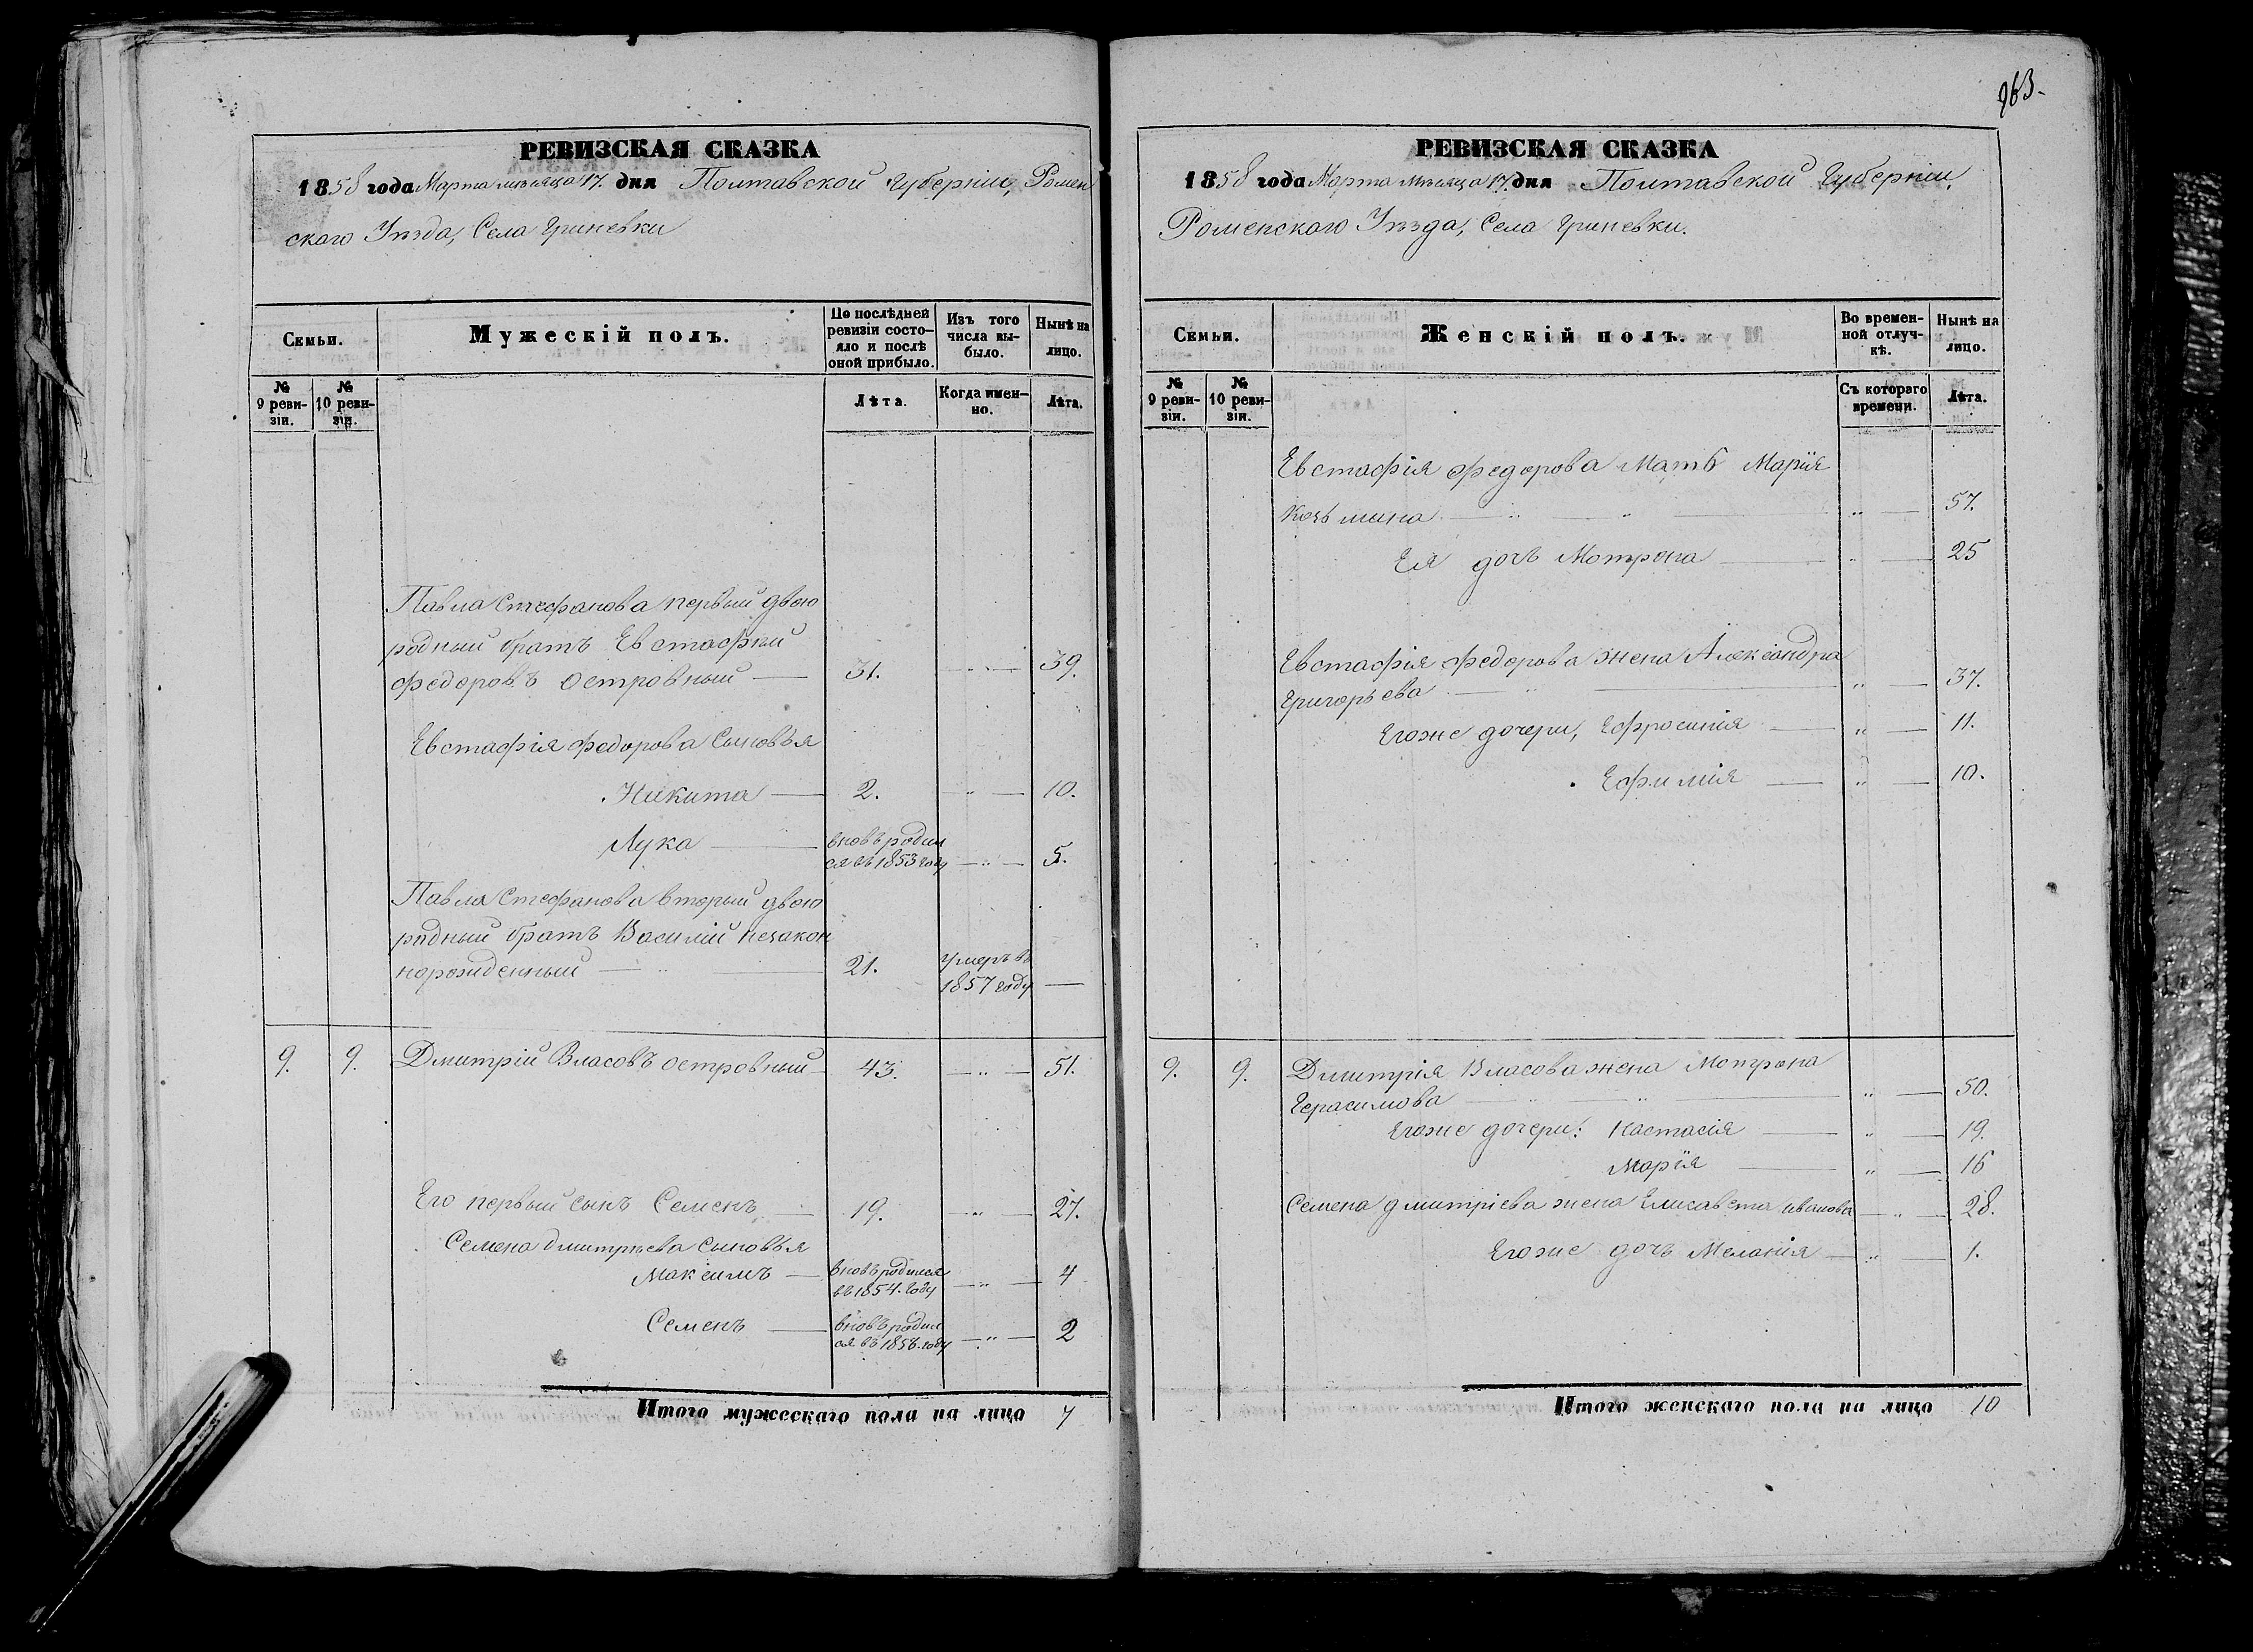 РЕВИЗСКАЯ СКАЗКА
1858 года Марта мѣсяца 17. дня Полтавской Губерніи, Ромен
скаго Уѣзда, Села Гриневки
Семьи.
Мужескій полъ.
По послѣдней ревизіи состояло и послѣ оной прибыло.
Изъ того числа выбыло.
Нынѣ на лицо.
№ 9 ревизіи.
№ 10 ревизіи.
Лѣта.
Когда именно.
Лѣта.
Павла Стефанова первый двою
родный братъ Евстафий
Федоровъ Островный 31. 39.
Евстафія Федорова Сыновья
Никита 2. 10.
Лука вновь родил
ся въ 1853 году 5.
Павла Стефанова вторый двою
родный братъ Василій незакон
норожденный 21. умеръ въ
1857 году
9. 9. Дмитрій Власовъ Островный 43. 51.
Его первый сынъ Семенъ 19. 27.
Семена Дмитріева Сыновья
Максимъ вновь родился
въ 1854. году 4
Семенъ вновь родил
ся въ 1856. году 2
Итого мужескаго пола на лицо 7
963.
РЕВИЗСКАЯ СКАЗКА
1858 года Марта мѣсяца 17. дня Полтавской Губерніи,
Роменскаго Уѣзда, Села Гриневки.
Семьи.
Женскій полъ.
Во временной отлучкѣ.
Нынѣ на лицо.
№ 9 ревизіи.
№ 10 ревизіи.
Съ котораго времени.
Лѣта.
Евстафія Федорова Мать Марія
Козьмина 57.
Ея дочь Мотрона 25
Евстафія Федорова жена Александра
Григорьева 37.
Егоже дочери, Ефросинія 11.
Ефимія 10.
9. 9. Дмитрія Власова жена Мотрона
Герасимова 50.
Егоже дочери: Настасія 19.
Марія 16
Семена Дмитріева жена Елисавета Иванова 28.
Егоже дочь Меланія 1.
Итого женскаго пола на лицо 10